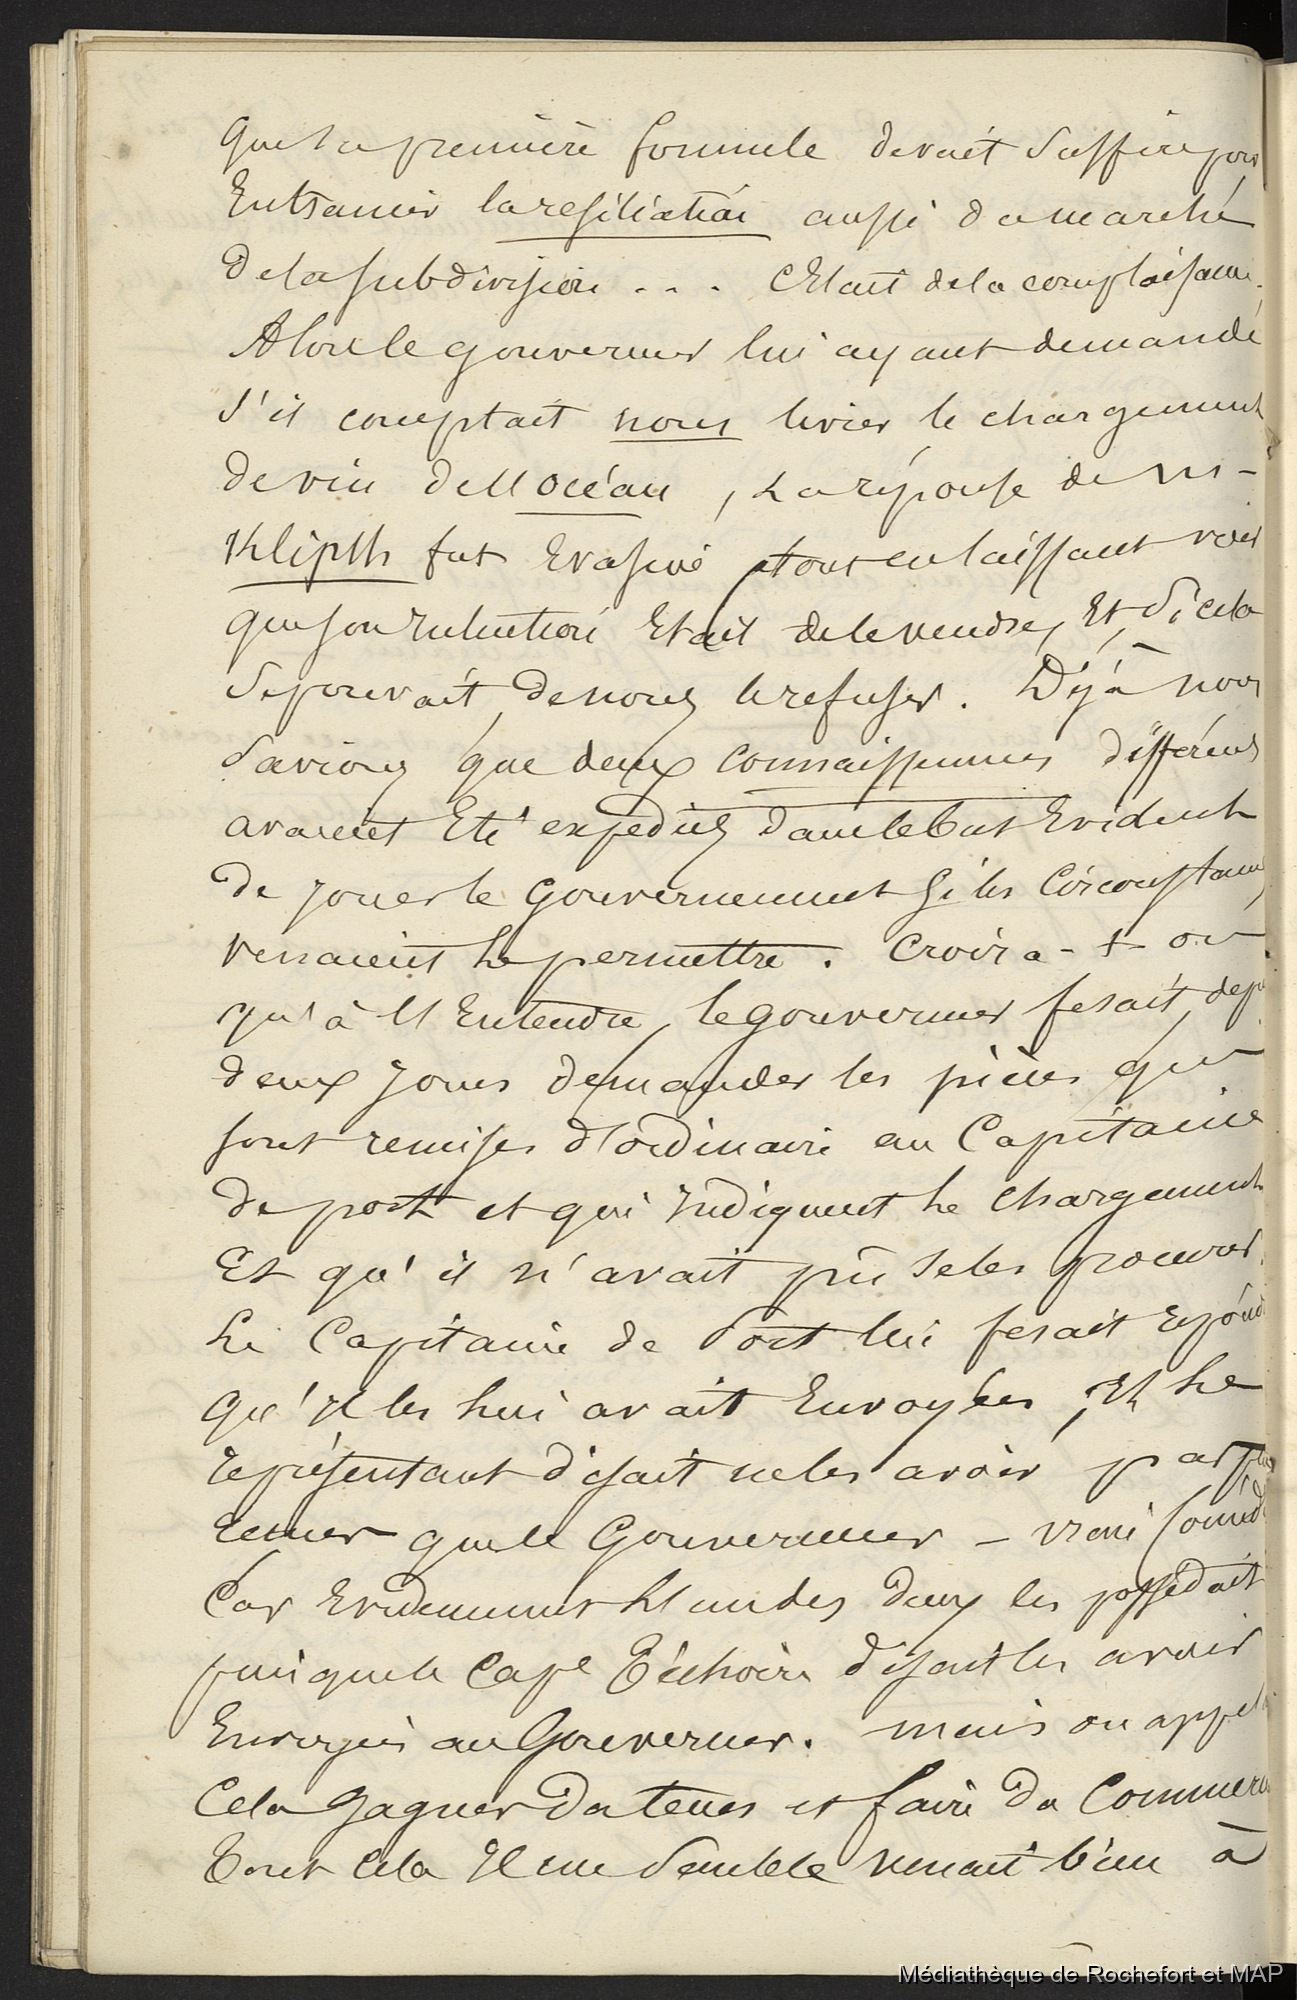 que la première formule devait suffire pour
Entrainer la resiliation aussi du marché
de la subdivision . . . C'Etait de la complaisance.
Alors le gouverneur lui ayant demandé
s'il comptait nous livrer le chargement
de vin de l'Océan, La réponse de Mr
Klipsth fut Evasive, tout en laissant voir
que son Intention Etait de le vendre, Et, si cela
se pouvait, de nous le refuser. Déjà nous
savions que deux connaissements différents
avaient Eté expediés dans le but Evident
de jouer le Gouvernement si les Circonstances
venaient le permettre. Croira-t-on
qu'à l'Entendre, le gouverneur fesait, depuis
deux jours demander les pièces qui
sont remises d'ordinaire au Capitaine
de port et qui Indiquent le chargement
Et qu'il n'avait pu se les procurer.
Le Capitaine de Port lui fesait répondre
qu'Il les lui avait Envoyées, Et le
représentant disait ne les avoir pas plus
recues que le Gouverneur – vraie Comédie
Car Evidemment l'un des deux les possédait
puisque le Cape disait les avoir
Envoyées au Gouverneur. Mais on appelle
Cela gagner du tems et faire du Commerce
Tout Cela Il me semble venait bien à
Médiathèque de Rochefort et MAP